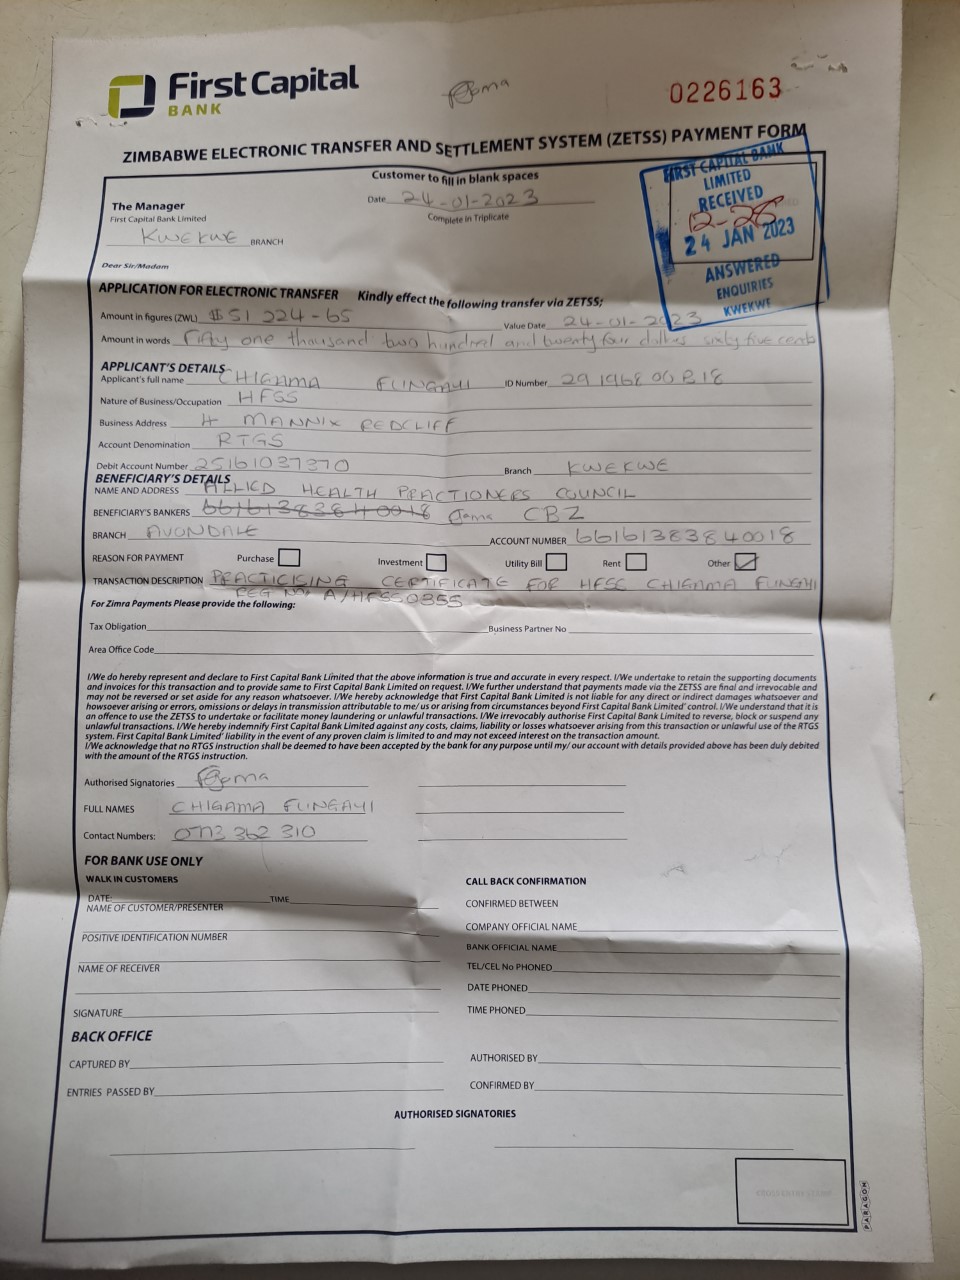 First Capital
BANK
0226163
ZIMBABWE ELECTRONIC TRANSFER AND SETTLEMENT SYSTEM (ZETSS) PAYMENT FORM
Customer to fill in blank spaces
Date 24-01-2023
Complete in Triplicate
FIRST CAPITAL BANK
LIMITED
RECEIVED
12-28
24 JAN 2023
ANSWERED
ENQUIRIES
KWEKWE
The Manager
First Capital Bank Limited
KWEKWE BRANCH
Dear Sir/Madam
APPLICATION FOR ELECTRONIC TRANSFER Kindly effect the following transfer via ZETSS;
Amount in figures (ZWL) $51 224-65 Value Date 24-01-2023
Amount in words Fifty one thousand two hundred and twenty four dollars sixty five cents
APPLICANT'S DETAILS
Applicant's full name CHIGAMA FUNGAYI ID Number 29 196800 B18
Nature of Business/Occupation HFSS
Business Address 4 MANNIX REDCLIFF
Account Denomination RTGS
Debit Account Number 25161037370 Branch KWEKWE
BENEFICIARY'S DETAILS
NAME AND ADDRESS ALLIED HEALTH PRACTIONERS COUNCIL
BENEFICIARY'S BANKERS 66161383840018 CBZ
BRANCH AVONDALE ACCOUNT NUMBER 66161383840018
REASON FOR PAYMENT Purchase Investment Utility Bill Rent Other
TRANSACTION DESCRIPTION PRACTICISING CERTIFICATE FOR HFSC CHIGAMA FUNGAYI
REG NO A/HFSS0855
For Zimra Payments Please provide the following:
Tax Obligation Business Partner No
Area Office Code
I/We do hereby represent and declare to First Capital Bank Limited that the above information is true and accurate in every respect. I/We undertake to retain the supporting documents
and invoices for this transaction and to provide same to First Capital Bank Limited on request. I/We further understand that payments made via the ZETSS are final and irrevocable and
may not be reversed or set aside for any reason whatsoever. I/We hereby acknowledge that First Capital Bank Limited is not liable for any direct or indirect damages whatsoever and
howsoever arising or errors, omissions or delays in transmission attributable to me/ us or arising from circumstances beyond First Capital Bank Limited' control. I/We understand that it is
an offence to use the ZETSS to undertake or facilitate money laundering or unlawful transactions. I/We irrevocably authorise First Capital Bank Limited to reverse, block or suspend any
unlawful transactions. I/We hereby indemnify First Capital Bank Limited against any costs, claims, liability or losses whatsoever arising from this transaction or unlawful use of the RTGS
system. First Capital Bank Limited' liability in the event of any proven claim is limited to and may not exceed interest on the transaction amount.
I/We acknowledge that no RTGS instruction shall be deemed to have been accepted by the bank for any purpose until my/ our account with details provided above has been duly debited
with the amount of the RTGS instruction.
Authorised Signatories
FULL NAMES CHIGAMA FUNGAYI
Contact Numbers: 0773 362 310
FOR BANK USE ONLY
WALK IN CUSTOMERS CALL BACK CONFIRMATION
DATE: TIME CONFIRMED BETWEEN
NAME OF CUSTOMER/PRESENTER
COMPANY OFFICIAL NAME
POSITIVE IDENTIFICATION NUMBER BANK OFFICIAL NAME
NAME OF RECEIVER TEL/CEL No PHONED
DATE PHONED
SIGNATURE TIME PHONED
BACK OFFICE
CAPTURED BY AUTHORISED BY
ENTRIES PASSED BY CONFIRMED BY
AUTHORISED SIGNATORIES
PARAGON